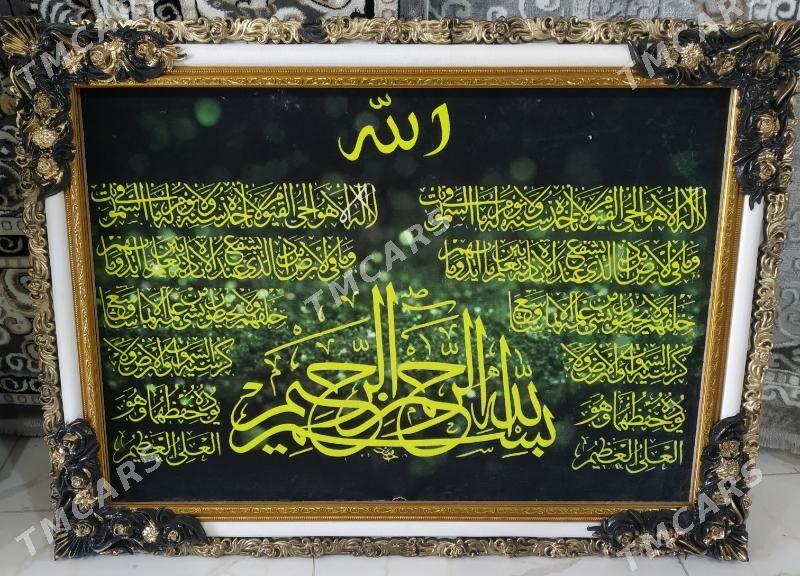 الله
لا اله الا هو الحي القيوم لا تاخذه سنة ولا نوم له ما في السموات
لا اله الا هو الحي القيوم لا تاخذه سنة ولا نوم له ما في السموات
وما في الارض من ذا الذي يشفع عنده الا باذنه يعلم ما بين ايديهم وما
وما في الارض من ذا الذي يشفع عنده الا باذنه يعلم ما بين ايديهم وما
خلفهم ولا يحيطون بشئ من علمه الا بما شاء وسع
خلفهم ولا يحيطون بشئ من علمه الا بما شاء وسع
كرسيه السموات والارض ولا
كرسيه السموات والارض ولا
يؤده حفظهما وهو
يؤده حفظهما وهو
العلي العظيم
العلي العظيم
بسم الله الرحمن الرحيم
TMCARS
TMCARS
TMCARS
TMCARS
TMCARS
TMCARS
TMCARS